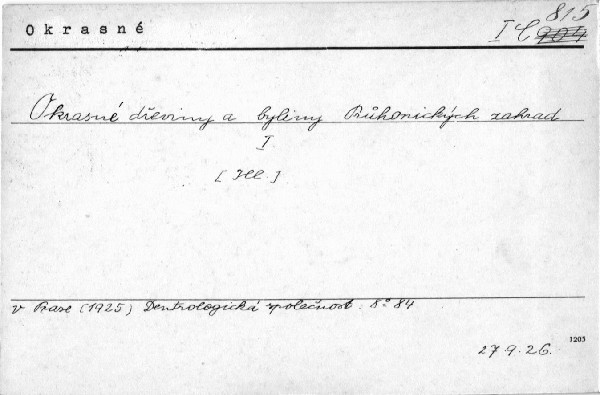 Okrasné
815
I C 904
Okrasné dřeviny a byliny Průhonických zahrad
I.
[Ill.]
v Praze (1925) Dentrologická společnost. 8° 84
1203
27.9.26.